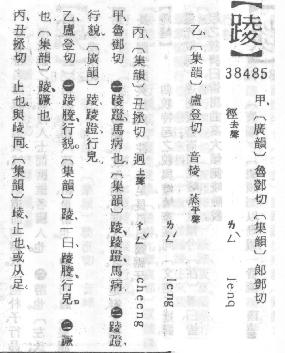 【踜】
38485
甲、〔廣韻〕魯鄧切〔集韻〕郎鄧切
徑去聲 ㄌㄥˋ lenq
乙、〔集韻〕盧登切 音陵 蒸平聲
ㄌㄥˊ leng
丙、〔集韻〕丑拯切 迥上聲 ㄔㄥˇ cheeng
甲魯鄧切 ㊀踜蹬馬病也。〔集韻〕踜、踜蹬、馬病。㊁踜蹬、
行貌。〔廣韻〕踜、踜蹬、行皃。
乙盧登切 ㊀踜䠮、行貌。〔集韻〕踜、一曰、踜䠮、行皃。㊁蹶
也。〔集韻〕踜、蹶也。
丙丑拯切 止也。與同。〔集韻〕、止也、或从足。